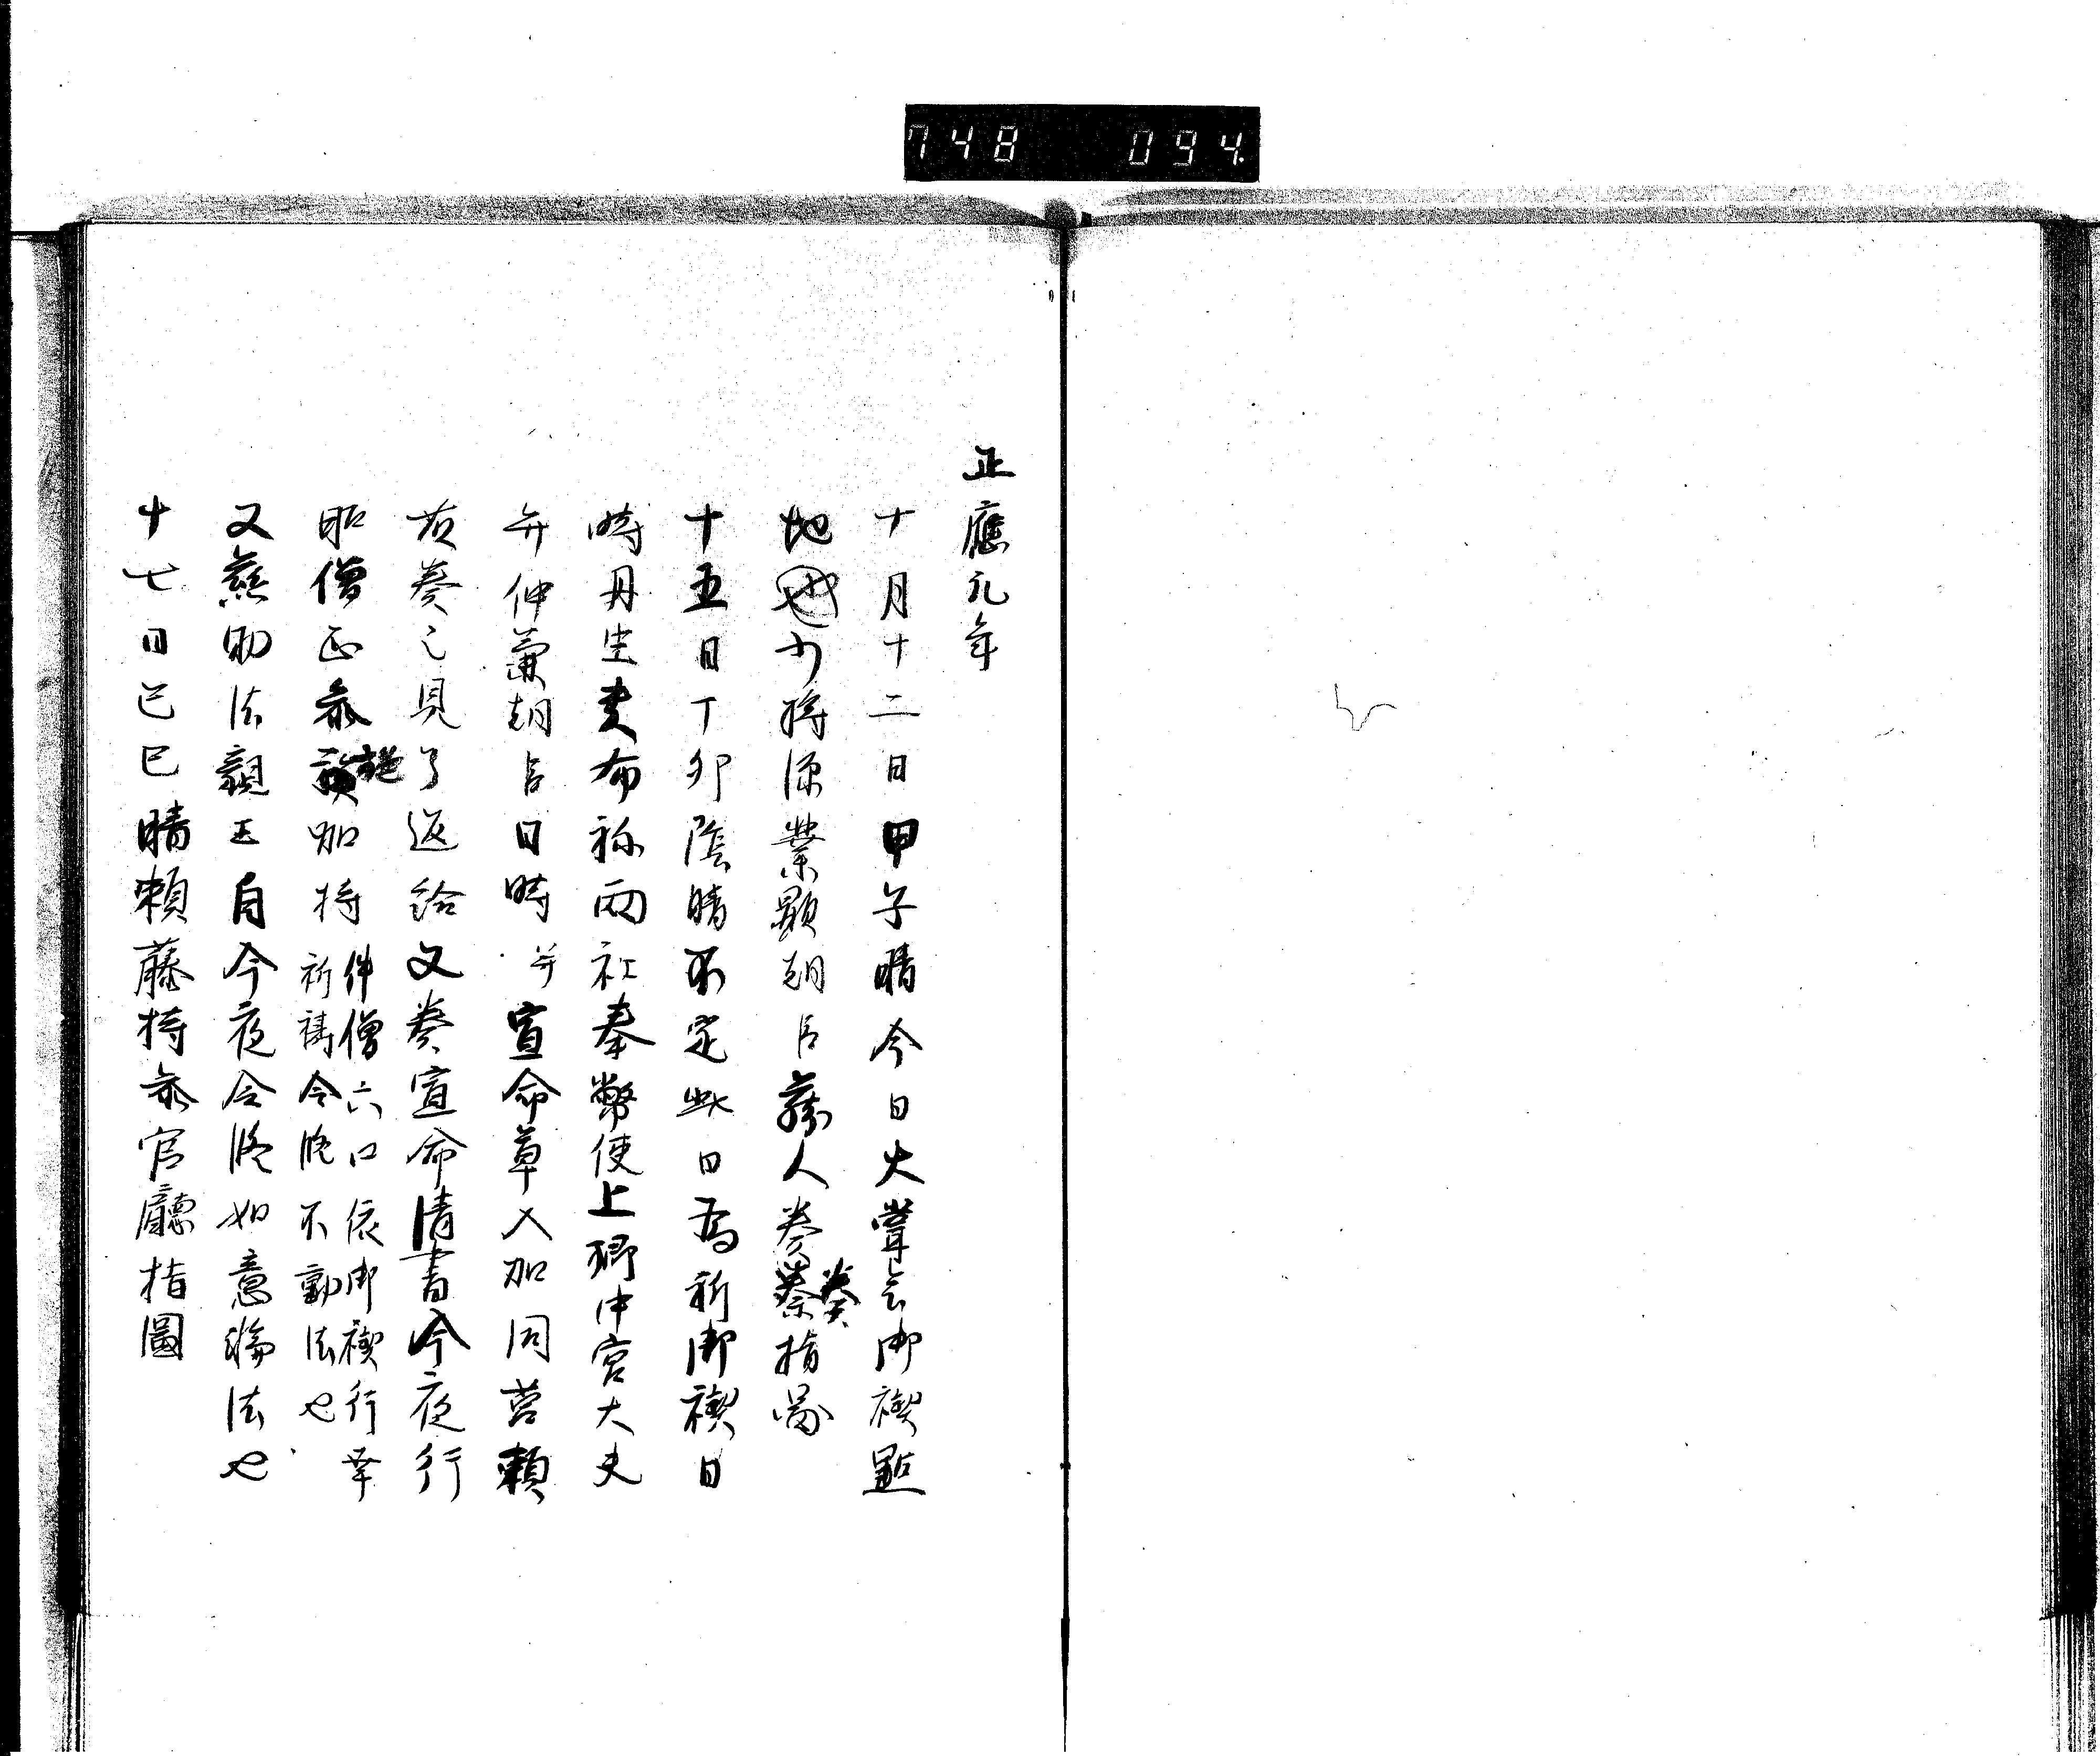 748 094
正應元年
十月十二日甲子晴今日大嘗会御禊點
地少将源業顕朝臣蔵人奏奏指啚
十五日丁卯陰晴不定此日為祈御禊日
時丹生貴布祢両社奉幣使上卿中宮大夫
弁仲兼朝臣日時并宣命草入加同筥頼
奏之見了返給又奏宣命清書今夜行
昭僧正参護加持件僧六口依御禊行幸
祈禱令修不動法也
又慈助法親王自今夜令修如意輪法也
十七日己巳晴頼藤持参官廳指圖